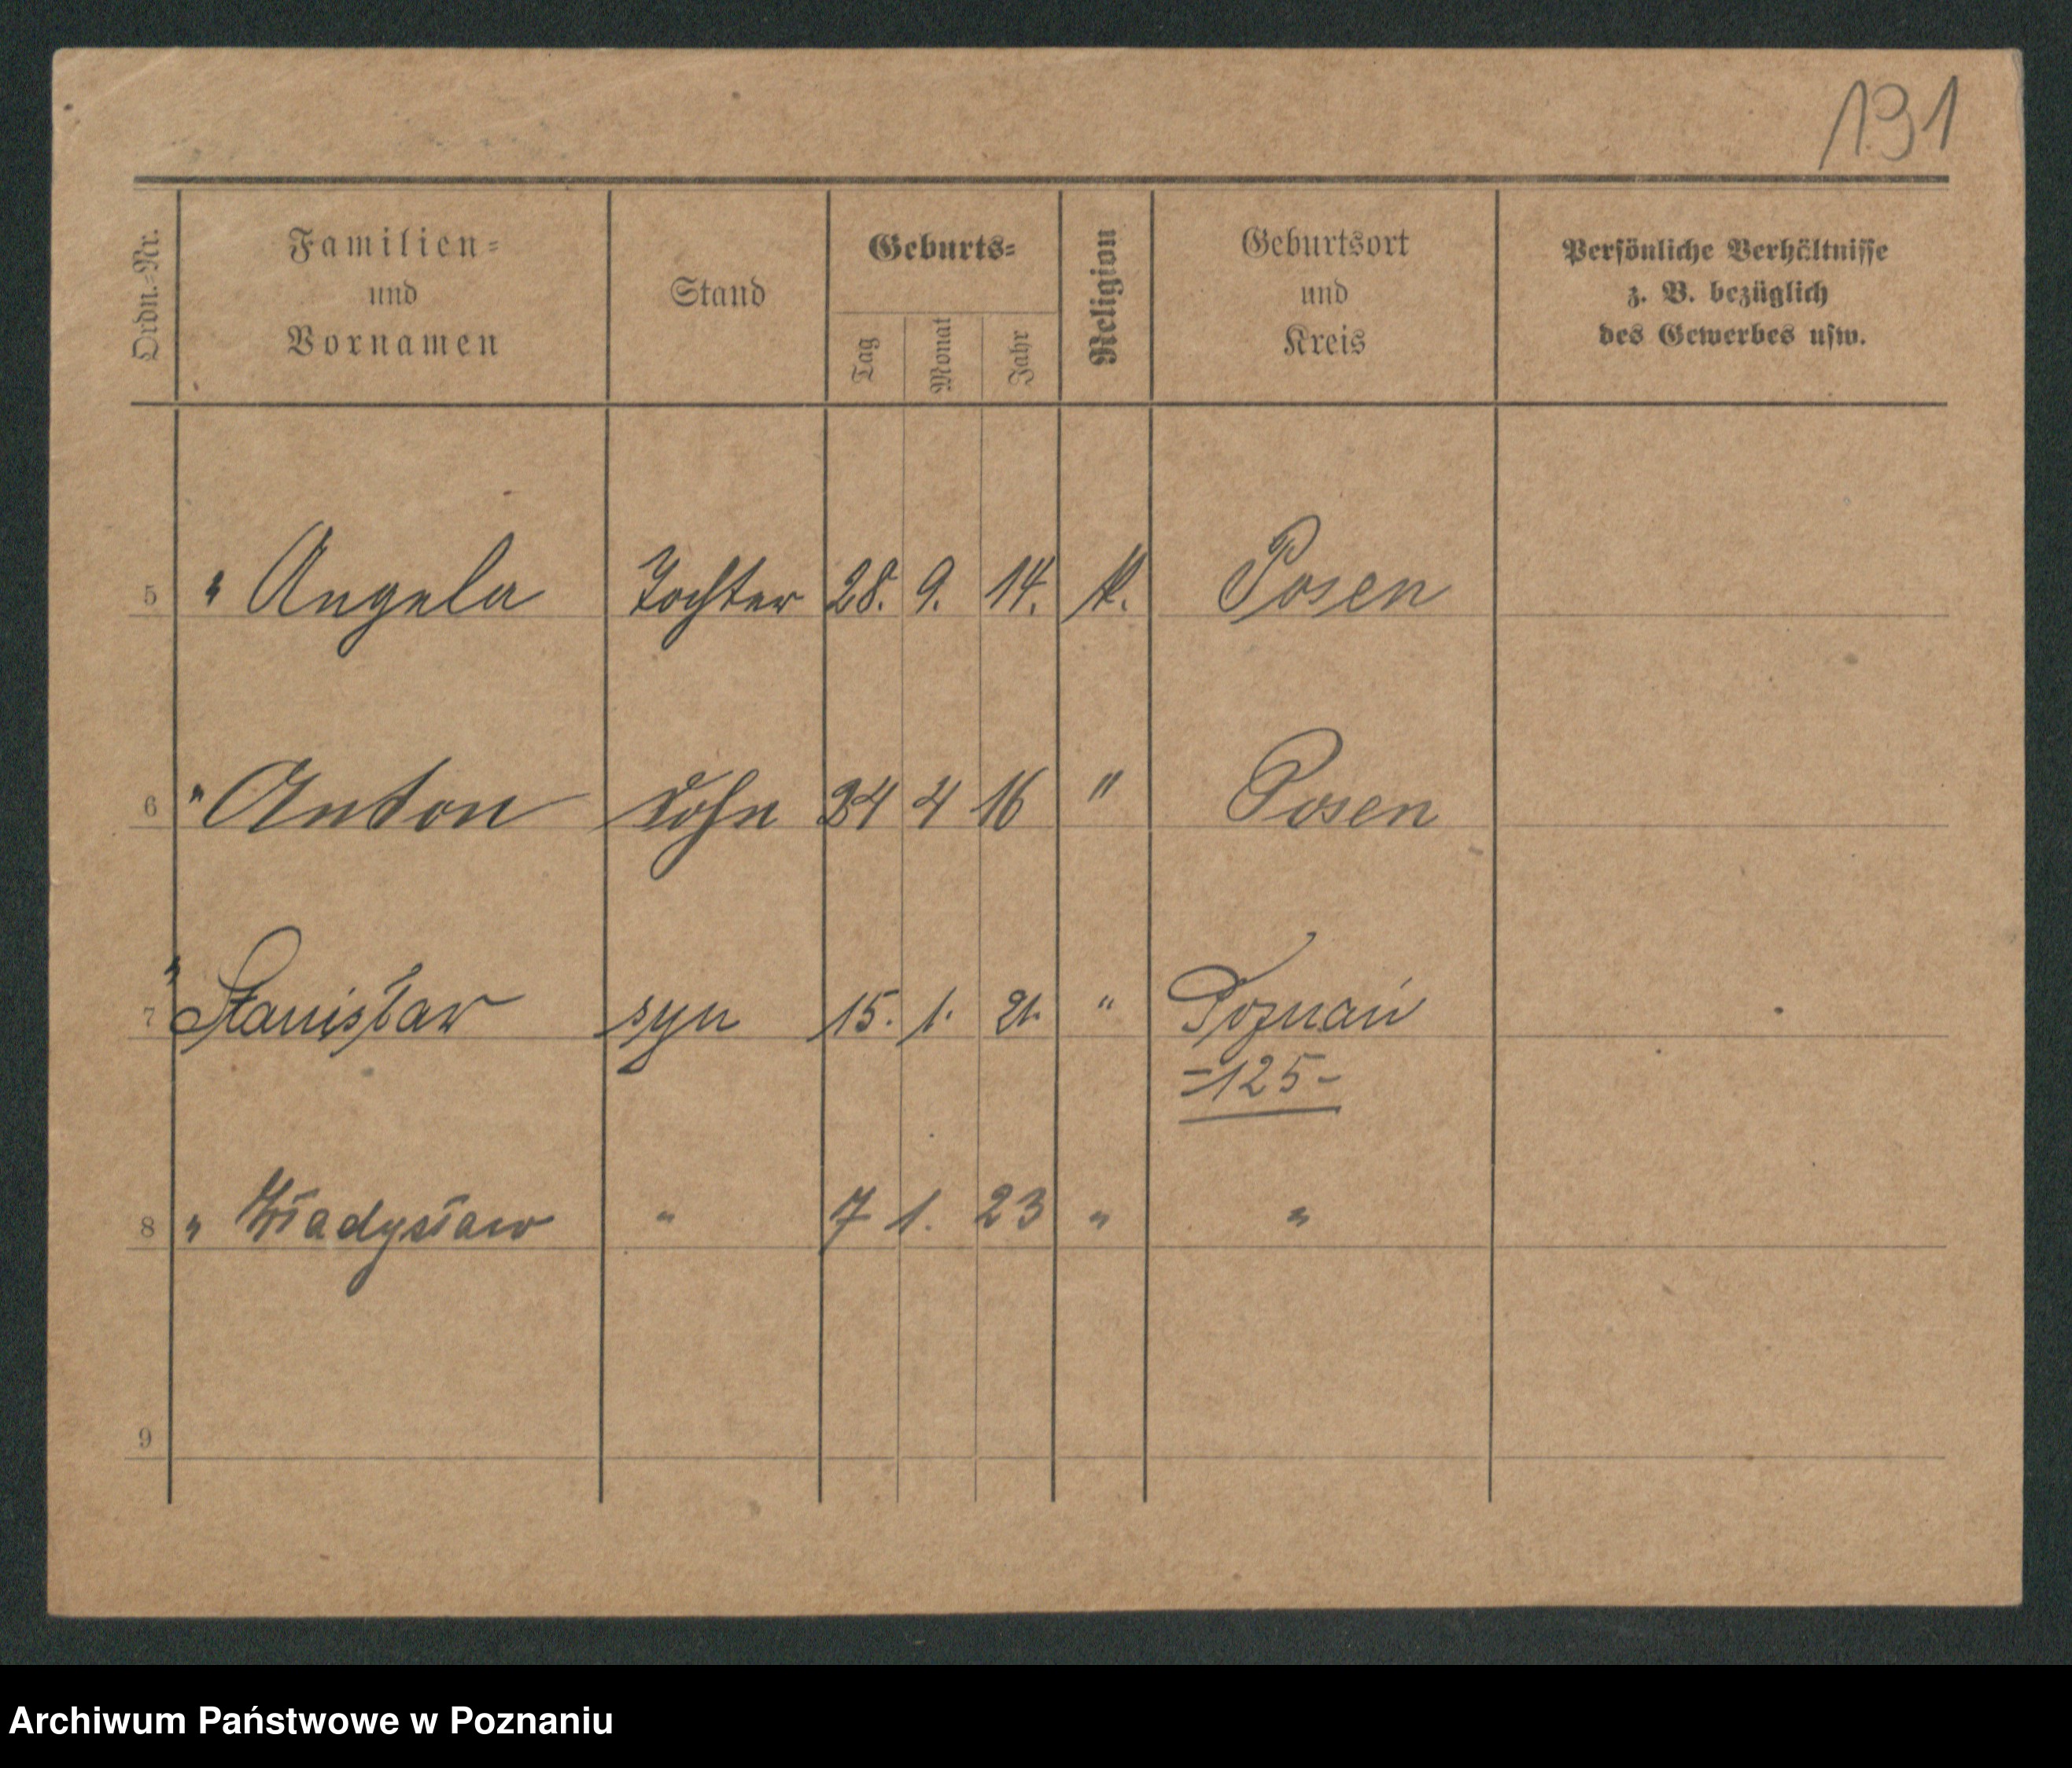 131
Ordn.-Nr.
Familien-
und
Vornamen
Stand
Geburts-
Tag
Monat
Jahr
Religion
Geburtsort
und
Kreis
Persönliche Verhältnisse
z. B. bezüglich
des Gewerbes usw.
5 " Angela Tochter 28. 9. 14. k. Posen
6 " Anton Sohn 24 4 16 " Posen
7 " Stanisław syn 15. 1. 21. " Poznań
-125-
8 " Władysław " 7 1. 23 " "
9
Archiwum Państwowe w Poznaniu